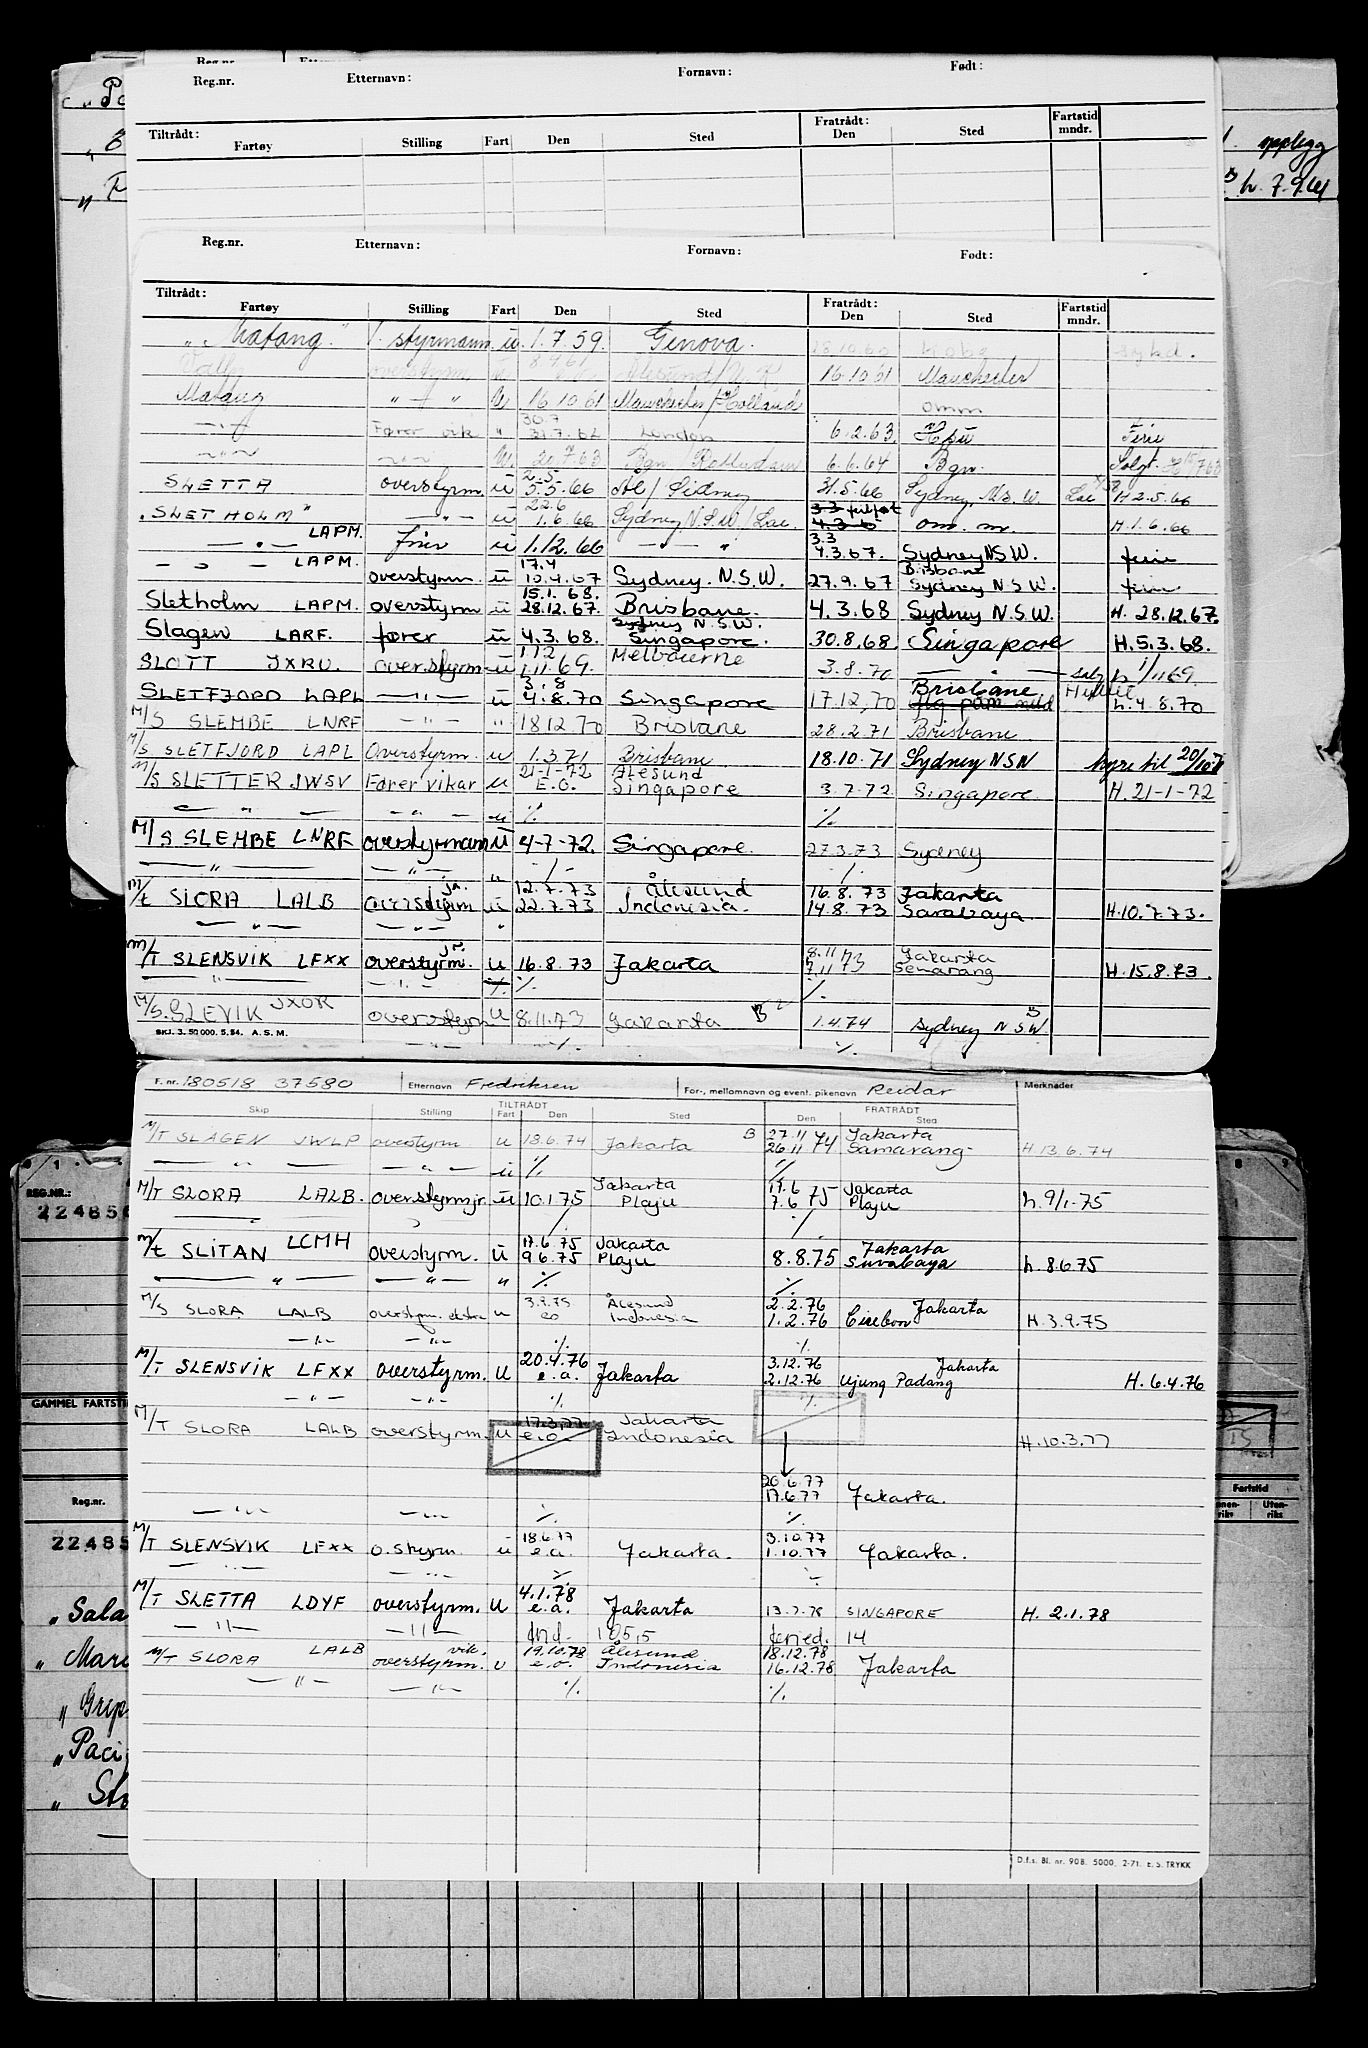 Reg.nr. Etternavn: Fornavn: Født:
Tiltrådt: Fratrådt: Fartstid mndr.
Fartøy Stilling Fart Den Sted Den Sted
opplegg
h. 7.9.61
Reg.nr. Etternavn: Fornavn: Født:
Tiltrådt: Fratrådt: Fartstid mndr.
Fartøy Stilling Fart Den Sted Den Sted
"Matang" 1. styrmann u. 1.7.59. Genova. 28.10.60 Kobe sykd.
overstyrm u 8.4.61 Ålesund/U.K 16.10.61 Manchester
Matang " — " u 16.10.61 Manchester/Holland omm
— " — Fører vik " 30.7 31.7.62 London 6.2.63. Ferie
— " — — " — u. 20.7.63 Bgn/Rotterdam 6.6.64 Bgn. Solgt.
SLETTA overstyrm. u 2.5. 5.5.66 Ål/Sidney 31.5.66 Sydney N.S.W. Lae H 2.5.66
"SLETHOLM" — " — u 22.6 1.6.66 Sydney N.S.W./Lae. om. m H.1.6.66
— " — LAPM. fører u 1.12.66 — " — 3.3 4.3.67. Sydney N.S.W. ferie
— " — LAPM. overstyrm. u 17.4 10.4.67 Sydney. N.S.W. 27.9.67 Brisbane Sydney N.S.W. ferie
Sletholm LAPM. overstyrm u 15.1.68. 28.12.67. Brisbane. 4.3.68 Sydney N.S.W. H. 28.12.67.
Slagen LARF. fører u 4.3.68. Sydney N.S.W. Singapore. 30.8.68 Singapore H.5.3.68.
SLOTT JXRU. overstyrm u 1.12 1.11.69. Melbourne 3.8.70 — " — salg h 1/11 69.
SLETFJORD LAPL — " — u 3.8 4.8.70 Singapore 17.12,70 Brisbane h.4.8.70
M/S SLEMBE LNRF — " — " 18 12.70 Brisbane 28.2.71 Brisbane
M/S. SLETFJORD LAPL Overstyrm. u 1.3.71 Brisbane 18.10.71 Sydney NSW hyre til 20/10-71
M/S SLETTER JWSV Fører vikar u 21-1-72 E.O. Ålesund Singapore 3.7.72 Singapore. H. 21-1-72
— " — — " — u ./. ./.
M/S SLEMBE LNRF overstyrmann u 4-7-72. Singapore. 27.3.73 Sydney
— " — — " — " ./. ./.
M/t SLORA LALB overstyrm jr. u 12.7.73 22.7.73 Ålesund Indonesia. 16.8.73 14.8.73 Jakarta Sarabaya H.10.7.73.
— " — — " — "
M/T SLENSVIK LFXX overstyrm. jr. u 16.8.73 Jakarta 8.11 7.11 73 Jakarta Semarang H.15.8.73.
— " — — " — ./. ./. ./.
M/S. SLEVIK JXOK overstyrm u 8.11.73 Jakarta B 1.4.74 Sydney N S.W. B
SKJ. 3. 50 000. 5. 54. A. S. M. — " — ./. ./.
F. nr. 180518 37580 Etternavn Fredriksen For-, mellomnavn og event. pikenavn Reidar Merknader
TILTRÅDT FRATRÅDT
Skip Stilling Fart Den Sted Den Sted
M/T SLAGEN JWLP overstyrm u 18.6.74 Jakarta B 27.11 26.11 74 Jakarta Samarang H 13.6.74
— " — — " — u ./. ./.
M/T SLORA LALB. overstyrm jr. u 10.1.75 Jakarta Plaju 17.6 7.6 75 Jakarta Plaju h.9/1-75
./. ./.
M/t SLITAN LCMH overstyrm. u 17.6.75 9.6.75 Jakarta Plaju 8.8.75 Jakarta Surabaya h.8.6.75
— " — — " — " ./. ./.
M/S SLORA LALB overstyrm. ekstra u 3.9.75 eo Ålesund Indonesia 2.2.76 1.2.76 Cirebon Jakarta H.3.9.75
— " — — " — ./. ./.
M/T SLENSVIK LFXX overstyrm. u 20.4.76 e.a. Jakarta 3.12.76 2.12.76 Jakarta Ujung Padang H. 6.4.76
— " — — " — ./. ./.
M/T SLORA LALB overstyrm. u 17.3.77 e.o. Jakarta Indonesia H.10.3.77
20.6.77 17.6.77 Jakarta.
— " — — " — ./. ./.
M/T SLENSVIK LFXX o.styrm. u 18.6.77 e.a. Jakarta. 3.10.77 1.10.77 Jakarta.
— " — — " — ./. ./.
M/T SLETTA LDYF overstyrm. u 4.1.78 e.a. Jakarta 13.7.78 SINGAPORE H. 2.1.78
— " — — " — 105,5 14
M/T SLORA LALB overstyrm. vik. u 19.10.78 e.o. Ålesund Indonesia 18.12.78 16.12.78 Jakarta
— " — — " — ./. ./.
D.f.s. Bl. nr. 908. 5000. 2-71. E. S. TRYKK
REG.NR.:
GAMMEL FARTSTI
Reg.nr.
22485
"Sala
"Mari
"Grip
"Paci
Fartstid
Uten-
riks